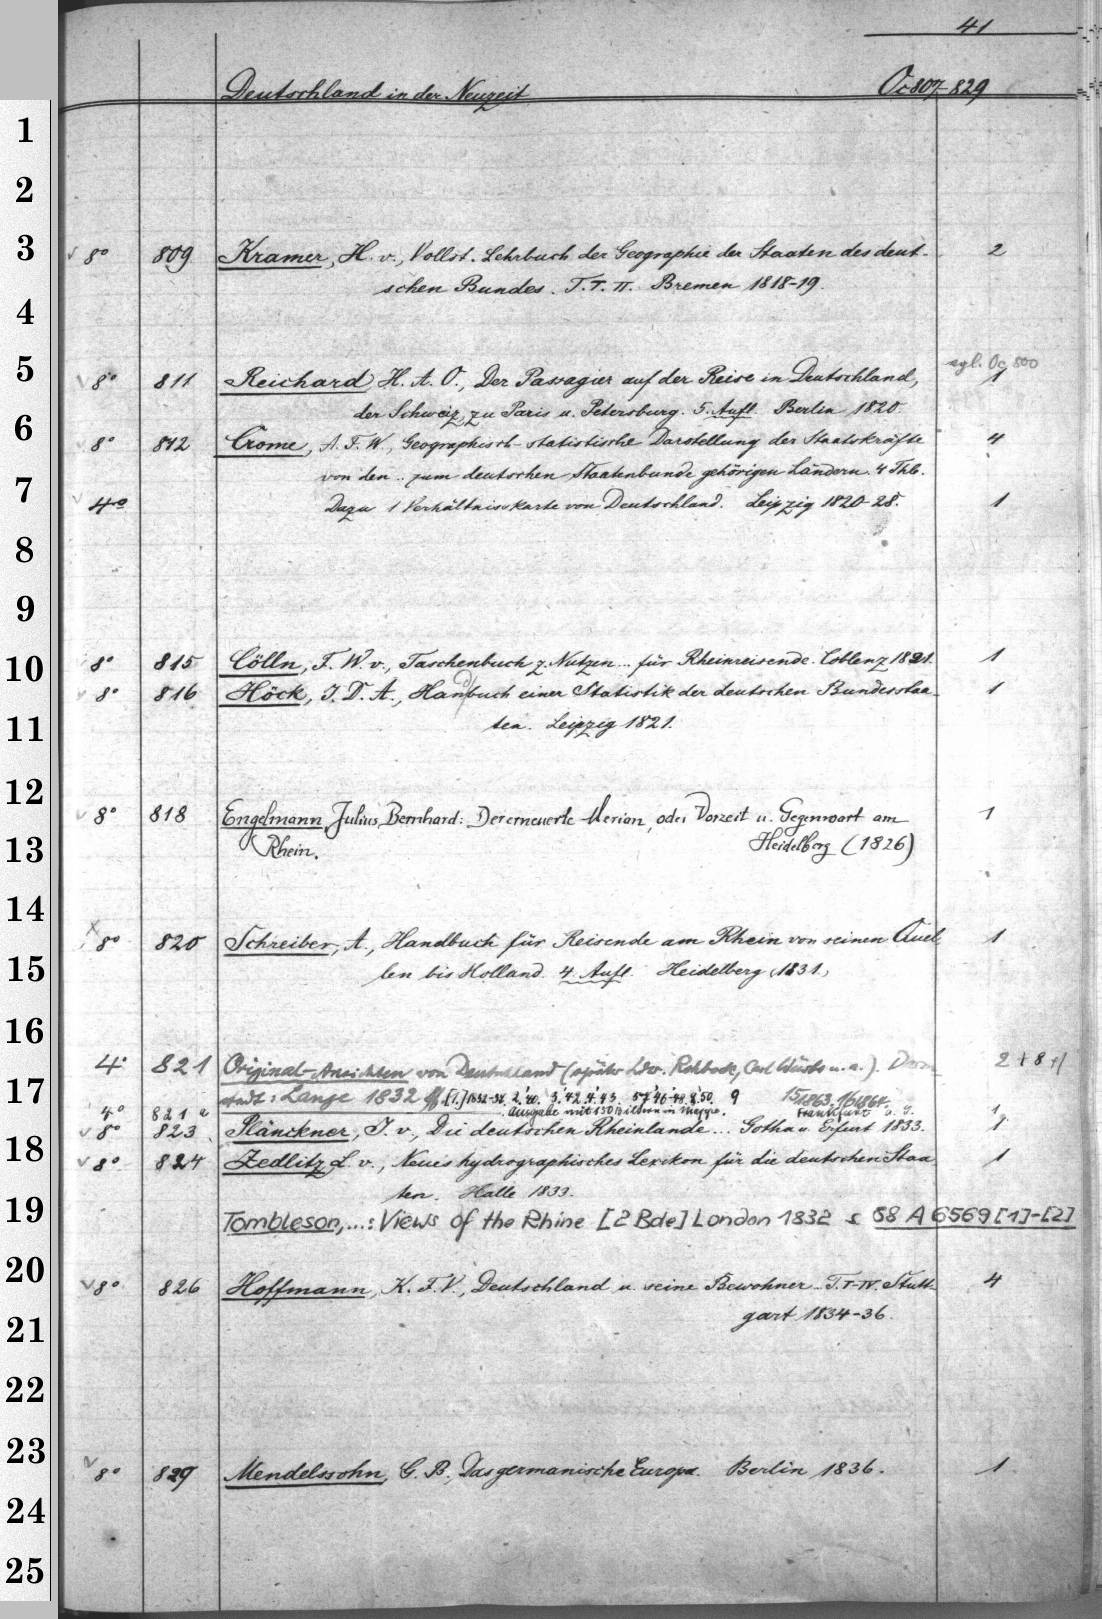 41
Deutschland in der Neuzeit Oc 807-829
1
2
3
8° 809 Kramer, H. v., Vollst. Lehrbuch der Geographie der Staaten des deut- 2
schen Bundes. T. I. II. Bremen 1818-19.
4
vgl. Oc 800
5
8° 811 Reichard, H. A. O., Der Passagier auf der Reise in Deutschland, 1
der Schweiz, zu Paris u. Petersburg. 5. Aufl. Berlin 1820.
6
8° 812 Crome, A. F. W., Geographisch-statistische Darstellung der Staatskräfte 4
von den .. zum deutschen Staatenbunde gehörigen Ländern. 4 Thle.
7
4° Dazu 1 Verhältnisskarte von Deutschland. Leipzig 1820-28. 1
8
9
10
8° 815 Cölln, F. W. v., Taschenbuch z. Nutzen... für Rheinreisende. Coblenz 1821. 1
8° 816 Höck, J. D. A., Handbuch einer Statistik der deutschen Bundesstaa- 1
11
ten. Leipzig 1821.
12
8° 818 Engelmann, Julius Bernhard: Der erneuerte Merian, oder Vorzeit u. Gegenwart am 1
13
Rhein. Heidelberg (1826)
14
8° 820 Schreiber, A., Handbuch für Reisende am Rhein von seinen Quel- 1
15
len bis Holland. 4. Aufl. Heidelberg (1831)
16
4° 821 Original-Ansichten von Deutschland (später Ldw. Rohbock, Carl Würbs u. a.). Darm- 2 + 8 +1
17
stadt: Lange 1832 ff. [1.] 1832-38. 2.'40. 3.'42. 4.'43. 5-7.'46-'48. 8.'50. 9 15.1863. 16.1864.
4° 821 a Ausgabe mit 130 Bildern in Mappe. Frankfurt o. J. 1
8° 823 Plänckner, J. v., Die deutschen Rheinlande... Gotha u. Erfurt 1833. 1
18
8° 824 Zedlitz, L. v., Neues hydrographisches Lexikon für die deutschen Staa- 1
ten. Halle 1833.
19
Tombleson, ...: Views of the Rhine [2 Bde] London 1832 s. 68 A 6569 [1]-[2]
20
8° 826 Hoffmann, K. F. V., Deutschland u. seine Bewohner... T. I-IV. Stutt- 4
21
gart 1834-36.
22
23
8° 829 Mendelssohn, G. B., Das germanische Europa. Berlin 1836. 1
24
25